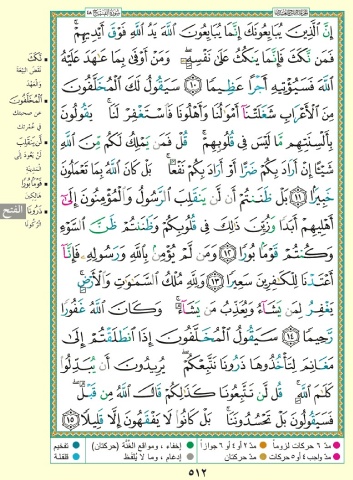 سورة الفتح ٤٨
إِنَّ ٱلَّذِينَ يُبَايِعُونَكَ إِنَّمَا يُبَايِعُونَ ٱللَّهَ يَدُ ٱللَّهِ فَوْقَ أَيْدِيهِمْ ۚ
فَمَن نَّكَثَ فَإِنَّمَا يَنكُثُ عَلَىٰ نَفْسِهِۦ ۖ وَمَنْ أَوْفَىٰ بِمَا عَٰهَدَ عَلَيْهُ
ٱللَّهَ فَسَيُؤْتِيهِ أَجْرًا عَظِيمًا ١٠ سَيَقُولُ لَكَ ٱلْمُخَلَّفُونَ
مِنَ ٱلْأَعْرَابِ شَغَلَتْنَآ أَمْوَٰلُنَا وَأَهْلُونَا فَٱسْتَغْفِرْ لَنَا ۚ يَقُولُونَ
بِأَلْسِنَتِهِم مَّا لَيْسَ فِى قُلُوبِهِمْ ۚ قُلْ فَمَن يَمْلِكُ لَكُم مِّنَ ٱللَّهِ
شَيْـًٔا إِنْ أَرَادَ بِكُمْ ضَرًّا أَوْ أَرَادَ بِكُمْ نَفْعًۢا ۚ بَلْ كَانَ ٱللَّهُ بِمَا تَعْمَلُونَ
خَبِيرًۢا ١١ بَلْ ظَنَنتُمْ أَن لَّن يَنقَلِبَ ٱلرَّسُولُ وَٱلْمُؤْمِنُونَ إِلَىٰٓ
أَهْلِيهِمْ أَبَدًا وَزُيِّنَ ذَٰلِكَ فِى قُلُوبِكُمْ وَظَنَنتُمْ ظَنَّ ٱلسَّوْءِ
وَكُنتُمْ قَوْمًۢا بُورًا ١٢ وَمَن لَّمْ يُؤْمِنۢ بِٱللَّهِ وَرَسُولِهِۦ فَإِنَّآ
أَعْتَدْنَا لِلْكَٰفِرِينَ سَعِيرًا ١٣ وَلِلَّهِ مُلْكُ ٱلسَّمَٰوَٰتِ وَٱلْأَرْضِ ۚ
يَغْفِرُ لِمَن يَشَآءُ وَيُعَذِّبُ مَن يَشَآءُ ۚ وَكَانَ ٱللَّهُ غَفُورًا
رَّحِيمًا ١٤ سَيَقُولُ ٱلْمُخَلَّفُونَ إِذَا ٱنطَلَقْتُمْ إِلَىٰ
مَغَانِمَ لِتَأْخُذُوهَا ذَرُونَا نَتَّبِعْكُمْ ۖ يُرِيدُونَ أَن يُبَدِّلُوا۟
كَلَٰمَ ٱللَّهِ ۚ قُل لَّن تَتَّبِعُونَا كَذَٰلِكُمْ قَالَ ٱللَّهُ مِن قَبْلُ ۖ
فَسَيَقُولُونَ بَلْ تَحْسُدُونَنَا ۚ بَلْ كَانُوا۟ لَا يَفْقَهُونَ إِلَّا قَلِيلًا ١٥
نَكَثَ
نقض البيعة
والعهد
المُخَلَّفُونَ
عن صحبتك
في عمرتك
لَن يَنقَلِبَ
لن يعود إلى
المدينة
قَوْمًا بُورًا
هالكين
ذَرُونَا
اتركونا
الفتح
مدّ ٦ حركات لزوماً
مدّ ٢ أو ٤ أو ٦ جوازاً
إخفاء، ومواقع الغُنَّة (حركتان)
تفخيم
مدّ واجب ٤ أو ٥ حركات
مدّ حركتان
إدغام، وما لا يُلفظ
قلقلة
٥١٢